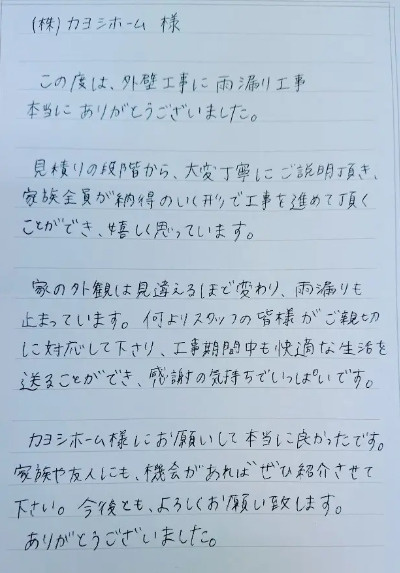 (株)カヨシホーム 様
この度は、外壁工事に雨漏り工事
本当にありがとうございました。
見積りの段階から、大変丁寧にご説明頂き、
家族全員が納得のいく形で工事を進めて頂く
ことができ、嬉しく思っています。
家の外観は見違えるほど変わり、雨漏りも
止まっています。何よりスタッフの皆様がご親切
に対応して下さり、工事期間中も快適な生活を
送ることができ、感謝の気持ちでいっぱいです。
カヨシホーム様にお願いして本当に良かったです。
家族や友人にも、機会があればぜひ紹介させて
下さい。今後とも、よろしくお願い致します。
ありがとうございました。